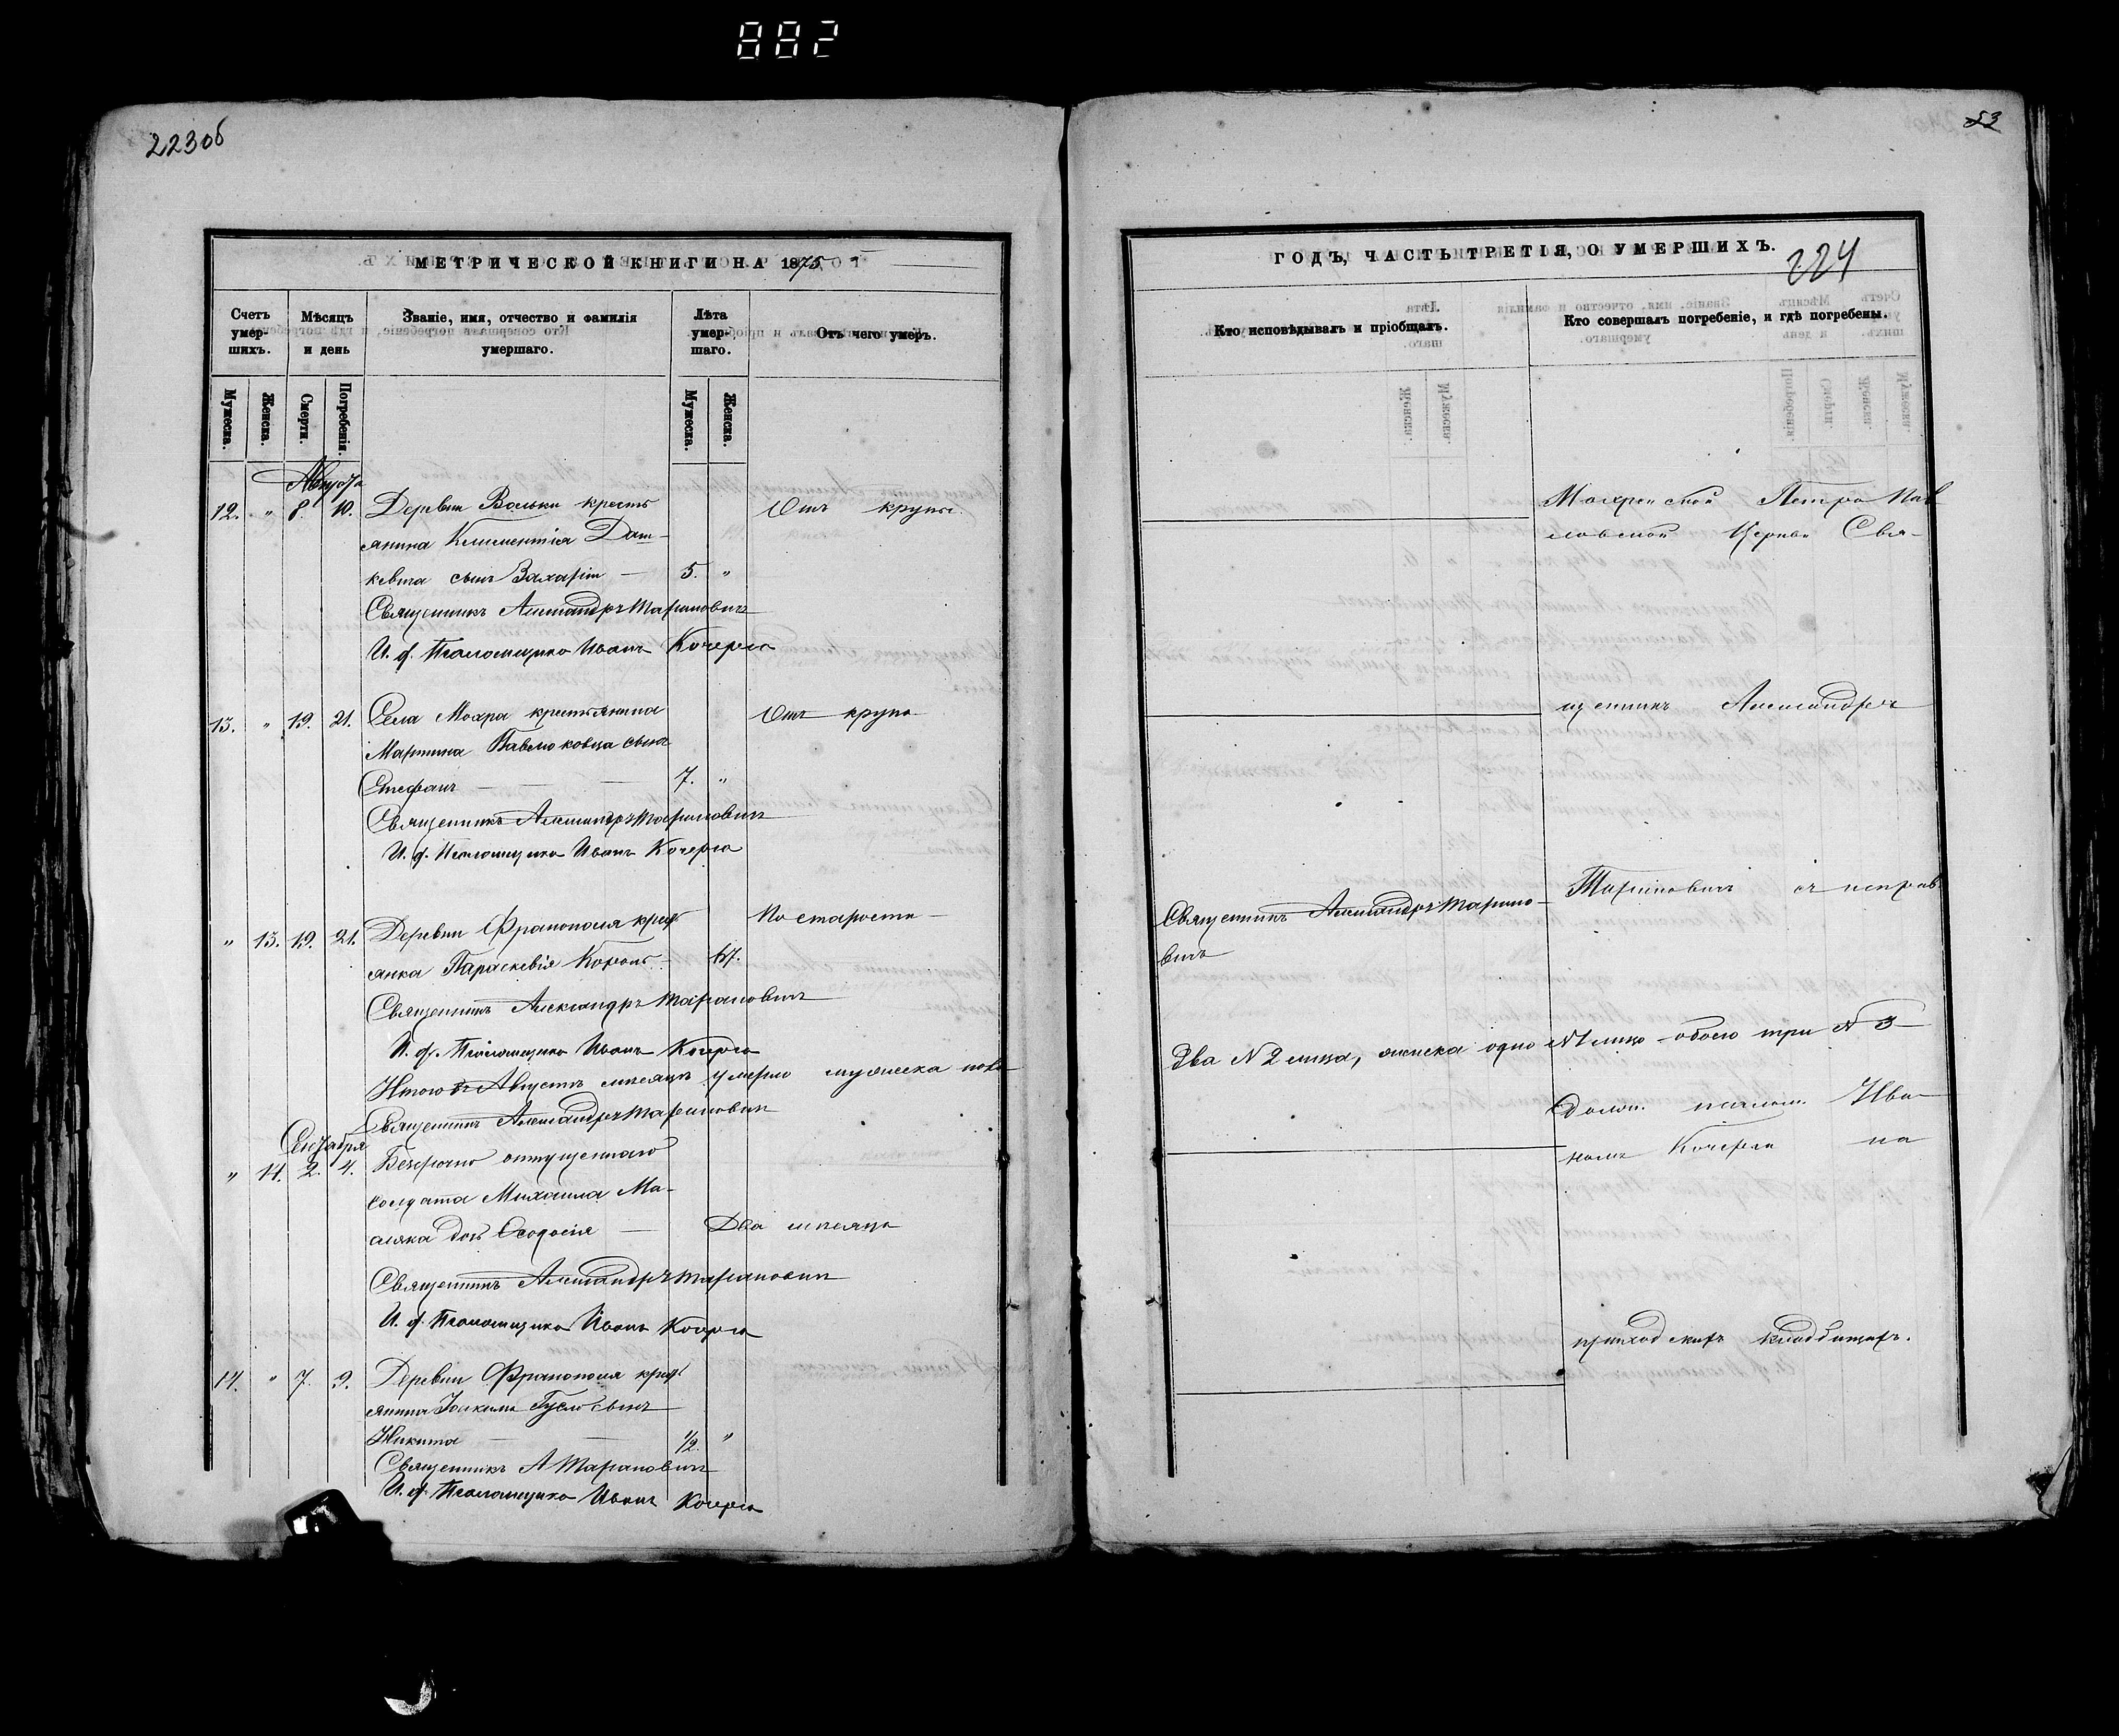 882
223об
МЕТРИЧЕСКОЙ КНИГИ НА 1875
Счетъ умер- шихъ.
Мѣсяцъ и день
Званіе, имя, отчество и фамилія умершаго.
Лѣта умер- шаго.
Отъ чего умеръ.
Мужеска.
Женска.
Смерти.
Погребенія.
Мужеска.
Женска.
Августа
12. " 8. 10. Деревни Вольки кресть
янина Климентія Даш-
кевича сынъ Захарій — 5. "
Отъ крупа.
Священникъ Александръ Тарановичъ
И. д. Псаломщика Иванъ Кочерга
13. " 19. 21. Села Мохра крестьянина
Мартина Павлюковца сынъ
Стефанъ — — 7. "
Отъ крупа
Священникъ Александръ Тарановичъ
И. д. Псаломщика Иванъ Кочерга
" 13. 19. 21. Деревни Франополя крест
янка Параскевія Король — 67.
По старости —
Священникъ Александръ Тарановичъ
И. д. Псаломщика Иванъ Кочерга
Итого въ Августѣ мѣсяцѣ умерло мужеска пола
Священникъ Александръ Тарановичъ
Сентября
" 14. 2. 4. Безсрочно отпущеннаго
солдата Михаила Ма-
сляка дочь Ѳеодосія — Два мѣсяца
Священникъ Александръ Тарановичъ
И. д. Псаломщика Иванъ Кочерга
14. " 7. 9. Деревни Франополя крест
янина Іоакима Гусло сынъ
Никита — — 1/2. "
Священникъ А Тарановичъ
И. д. Псаломщика Иванъ Кочерга
53
ГОДЪ, ЧАСТЬ ТРЕТІЯ, О УМЕРШИХЪ.
224
Кто исповѣдывалъ и пріобщалъ.
Кто совершалъ погребеніе, и гдѣ погребены.
Мохренской Петро Пав
ловской Церкви Свя-
щенникъ Александръ
Тарановичъ съ исправ.
Священникъ Александръ Тарано-
вичъ
два N 2 лица, женска одно N 1 лицо обоего три N 3
должн. псалом. Ива-
номъ Кочерга на
приходскихъ кладбищахъ.